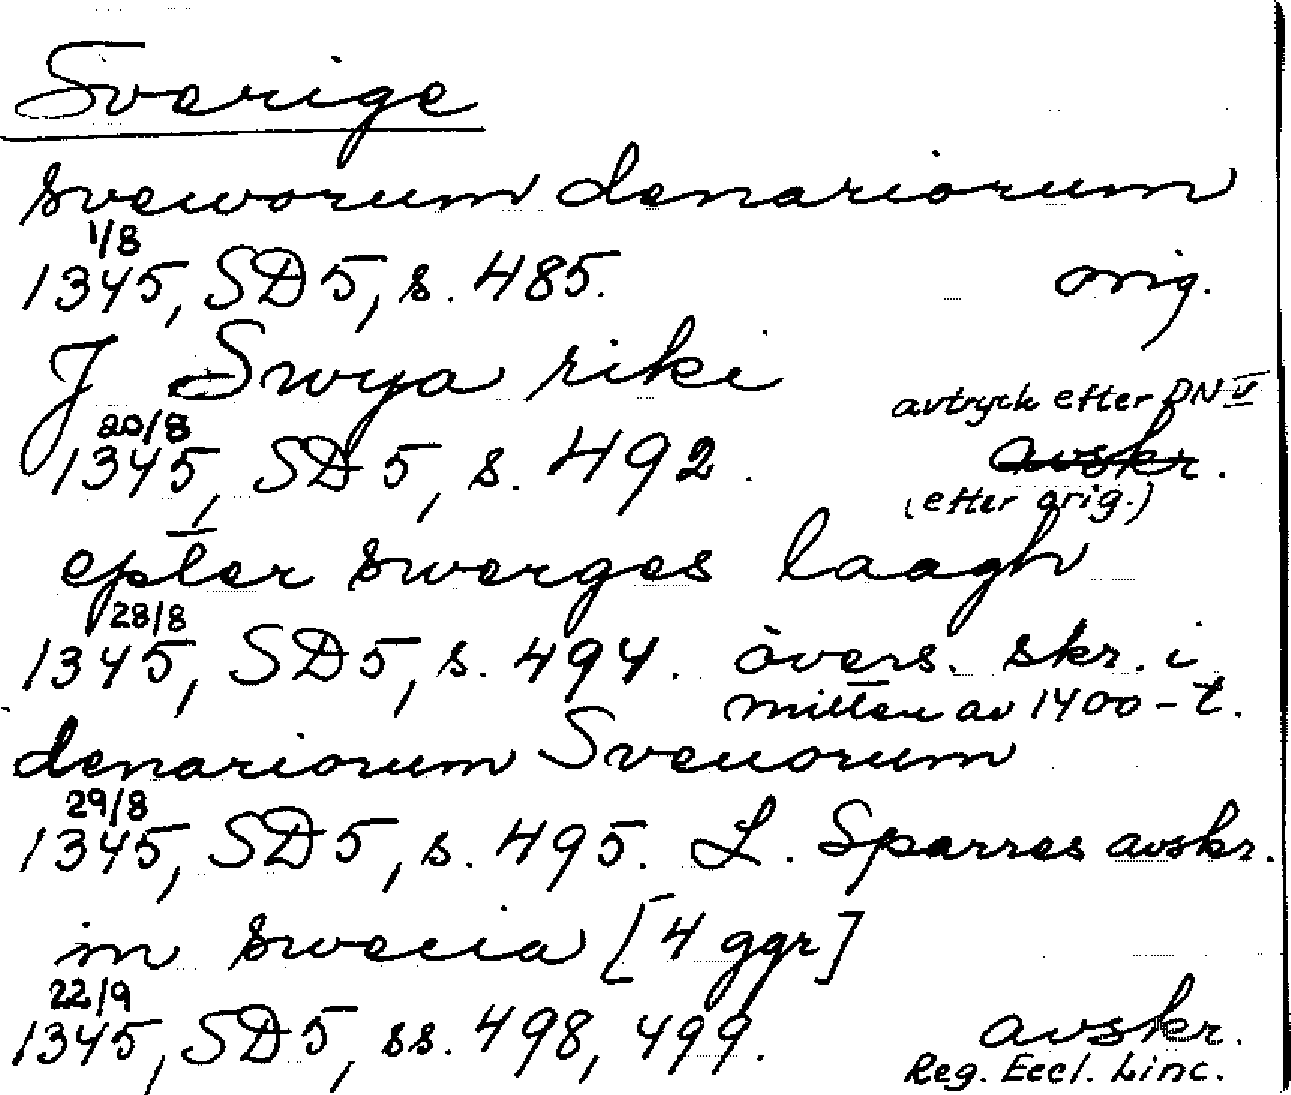 Sverige
sveworum denariorum
1/8
1345, SD 5, s. 485. orig.
J Swya riki
avtryck efter DN V
20/8
1345, SD 5, s. 492. avskr.
(efter orig.)
epter swerges laagh
28/8
1345, SD 5, s. 494. övers. skr. i
mitten av 1400-t.
denariorum Sveuorum
29/8
1345, SD 5, s. 495. L. Sparres avskr.
in swecia [4 ggr]
22/9
1345, SD 5, ss. 498, 499. avskr.
Reg. Eccl. Linc.